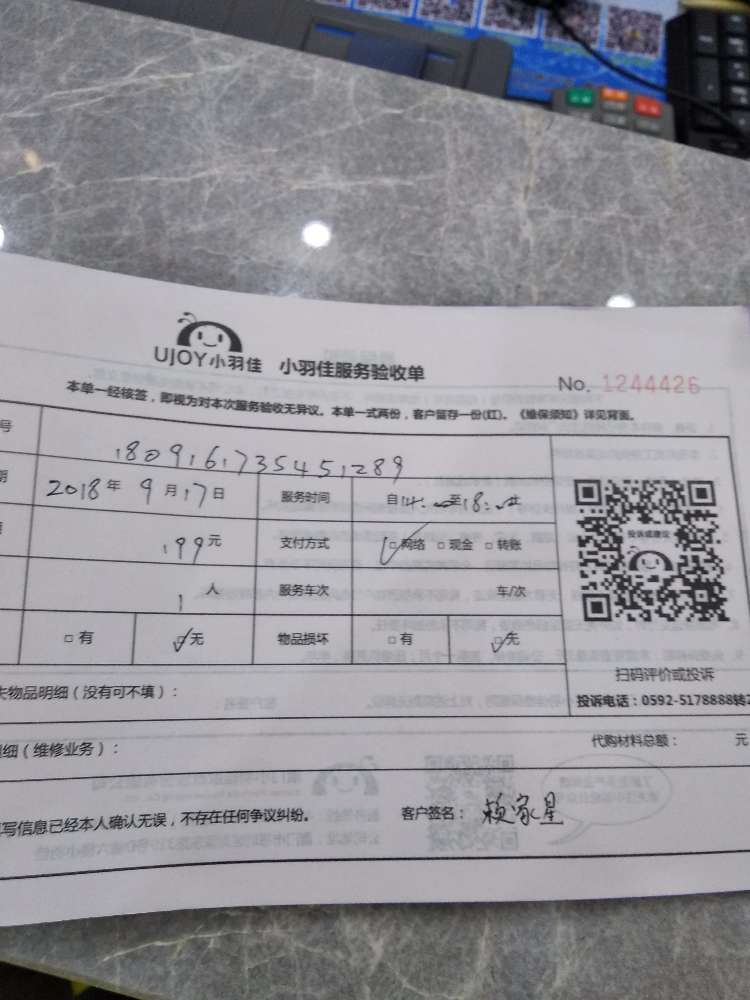 UJOY小羽佳 小羽佳服务验收单
No. 1244426
本单一经核签，即视为对本次服务验收无异议。本单一式两份，客户留存一份(红)。《维保须知》详见背面。
号 1809161735451289
期 2018年 9月17日 服务时间 自14: 至18:
199元 支付方式 ☑网络 □现金 □转账
1人 服务车次 车/次
□有 ☑无 物品损坏 □有 ☑无
投诉或建议
扫码评价或投诉
失物品明细（没有可不填）：
投诉电话：0592-5178888转2
细（维修业务）：
代购材料总额： 元
写信息已经本人确认无误，不存在任何争议纠纷。 客户签名：赖家星